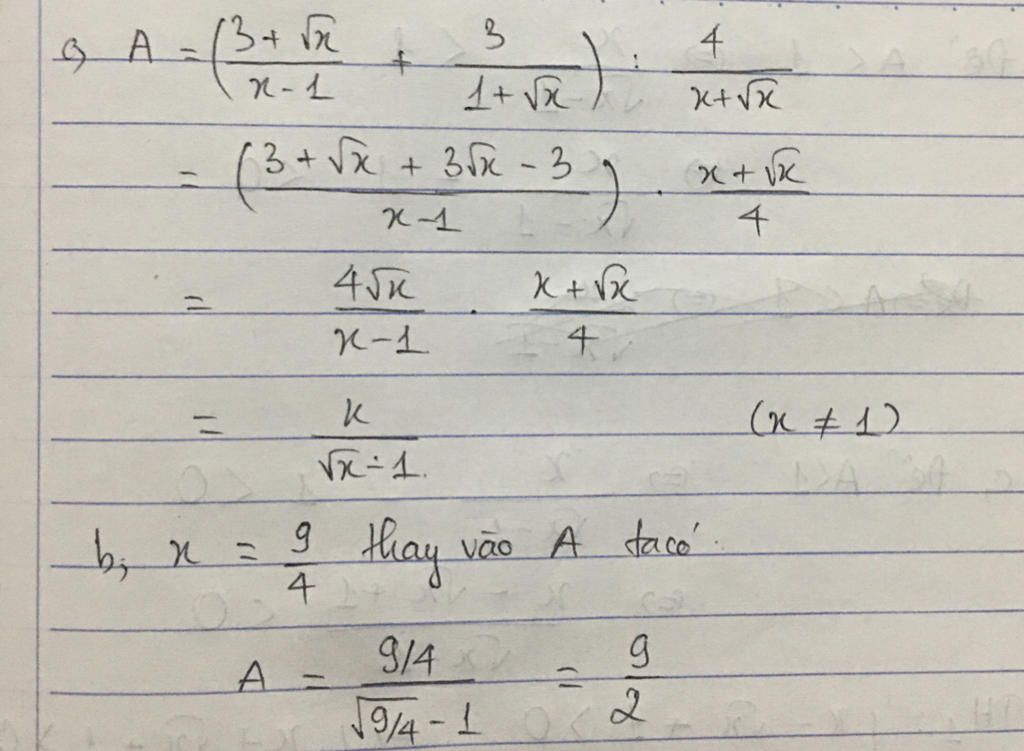 a, A = ((3 + √x)/(x - 1) + 3/(1 + √x)) : 4/(x + √x)
= ((3 + √x + 3√x - 3)/(x - 1)) . (x + √x)/4
= 4√x/(x - 1) . (x + √x)/4
= x/(√x - 1) (x ≠ 1)
b, x = 9/4 thay vào A ta có
A = (9/4)/(√(9/4) - 1) = 9/2